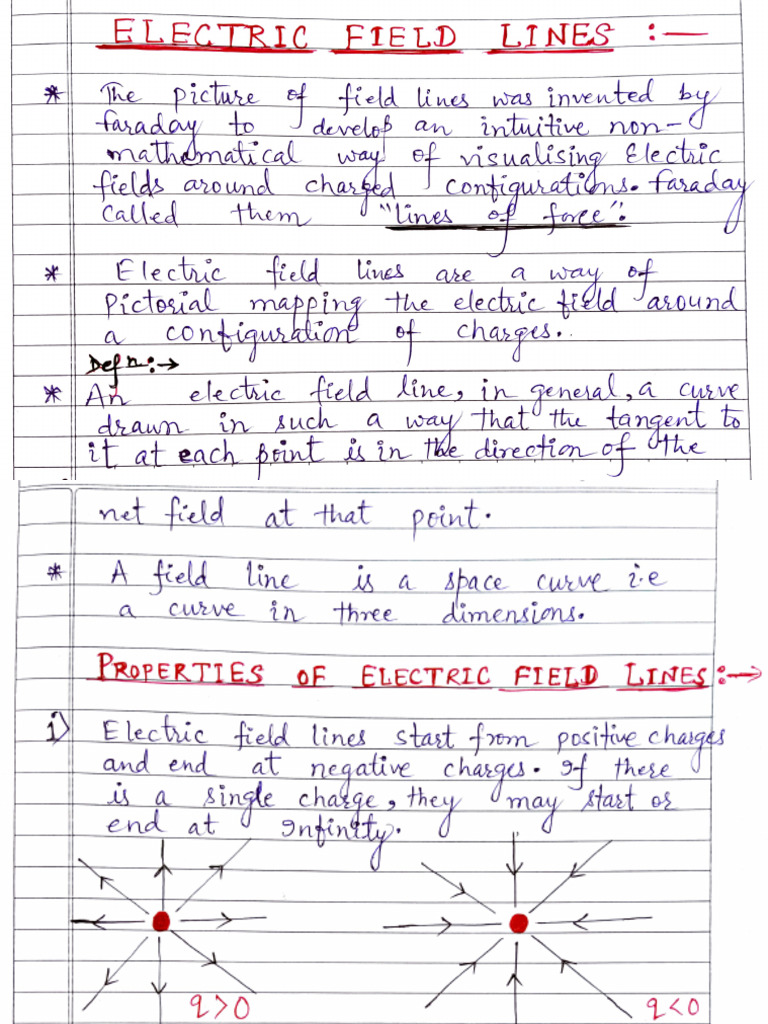 ELECTRIC FIELD LINES :—
* The picture of field lines was invented by
faraday to develop an intuitive non-
mathematical way of visualising Electric
fields around charged configurations. faraday
called them "lines of force".
* Electric field lines are a way of
pictorial mapping the electric field around
a configuration of charges.
Defn:→
* An electric field line, in general, a curve
drawn in such a way that the tangent to
it at each point is in the direction of the
net field at that point.
* A field line is a space curve i.e
a curve in three dimensions.
PROPERTIES OF ELECTRIC FIELD LINES:→
i) Electric field lines start from positive charges
and end at negative charges. If there
is a single charge, they may start or
end at infinity.
q>0 q<0